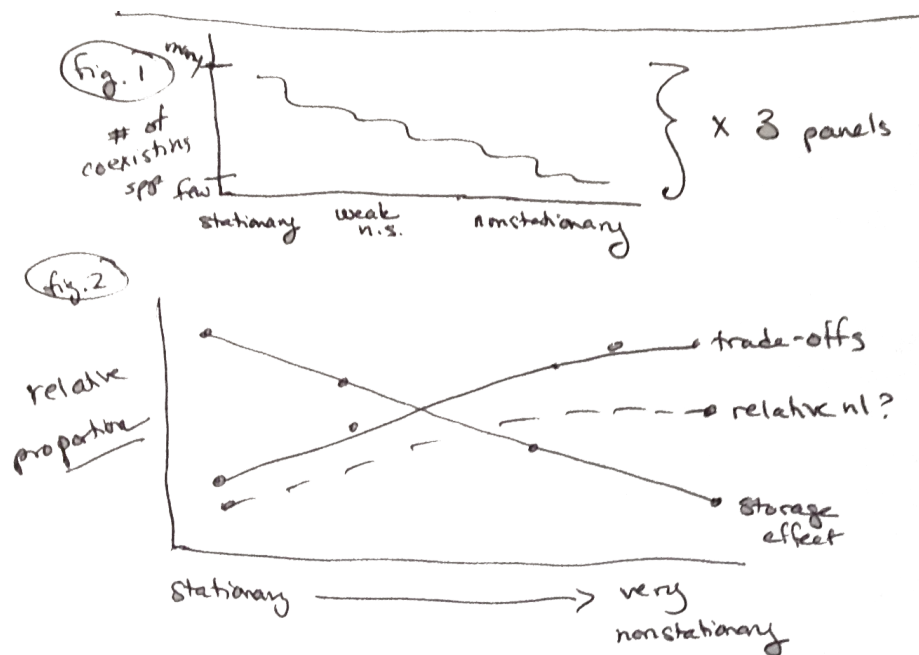 fig. 1
many
# of
coexisting
spp
few
} x 3 panels
stationary weak nonstationary
n.s.
fig. 2
relative
proportion
trade-offs
relative nl?
storage
effect
stationary → very
nonstationary